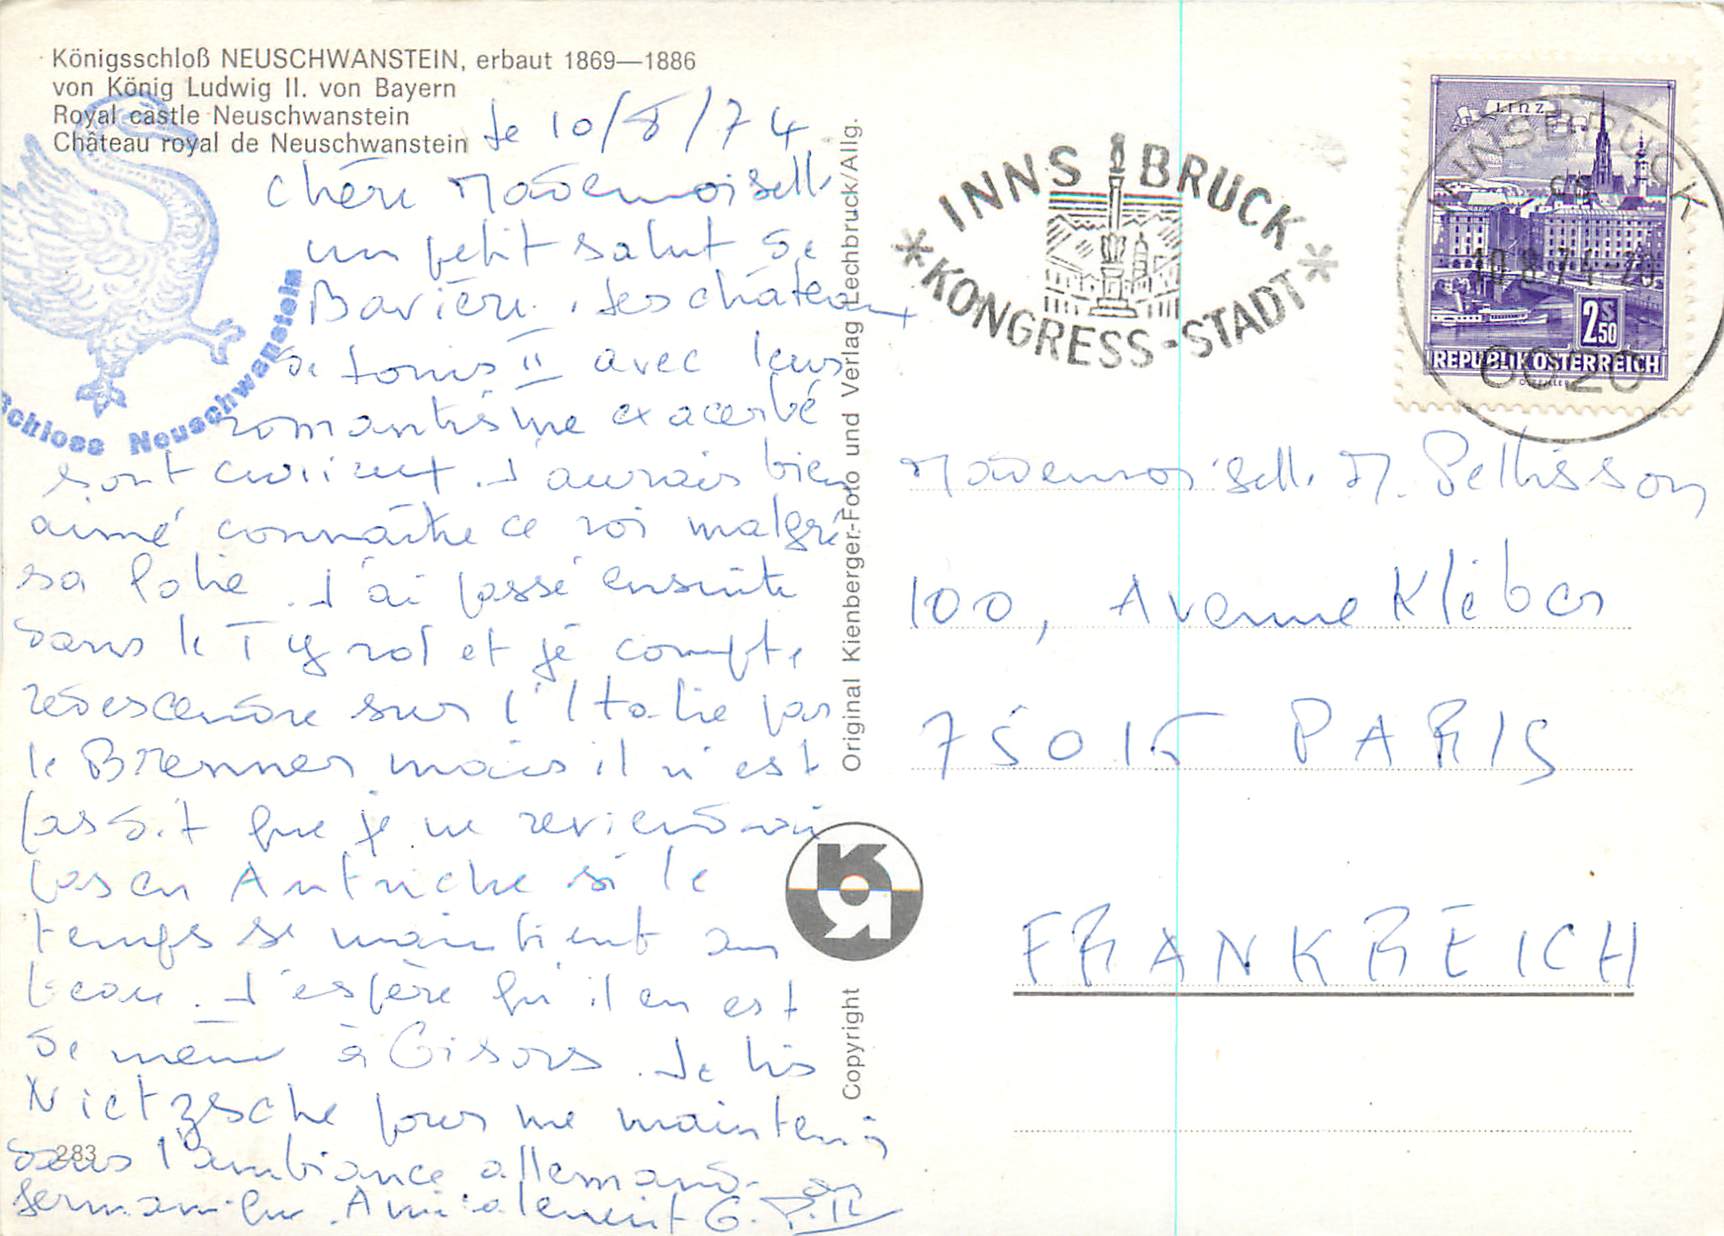 Königsschloß NEUSCHWANSTEIN, erbaut 1869—1886
von König Ludwig II. von Bayern
Royal castle Neuschwanstein
Château royal de Neuschwanstein
Schloss Neuschwanstein
Le 10/8/74
Chère Mademoiselle
un petit salut de
Bavière. Les châteaux
de Louis II avec leur
romantisme exacerbé
sont curieux. J'aurais bien
aimé connaître ce roi malgré
sa folie. J'ai passé ensuite
dans le Tyrol et je compte
redescendre sur l'Italie par
le Brenner mais il n'est
pas dit que je ne reviendrai
pas en Autriche si le
temps se maintient au
beau. J'espère qu'il en est
de même à Gisors. Je lis
Nietzsche pour me maintenir
dans l'ambiance allemande ou
germanique. Amicalement G.
283
Original Kienberger-Foto und Verlag Lechbruck/Allg.
Copyright
INNSBRUCK
KONGRESS-STADT
LINZ
INNSBRUCK
10.8.74-20
6020
2S50
REPUBLIK ÖSTERREICH
Mademoiselle M. Pellisson
100, Avenue Kléber
75016 PARIS
FRANKREICH